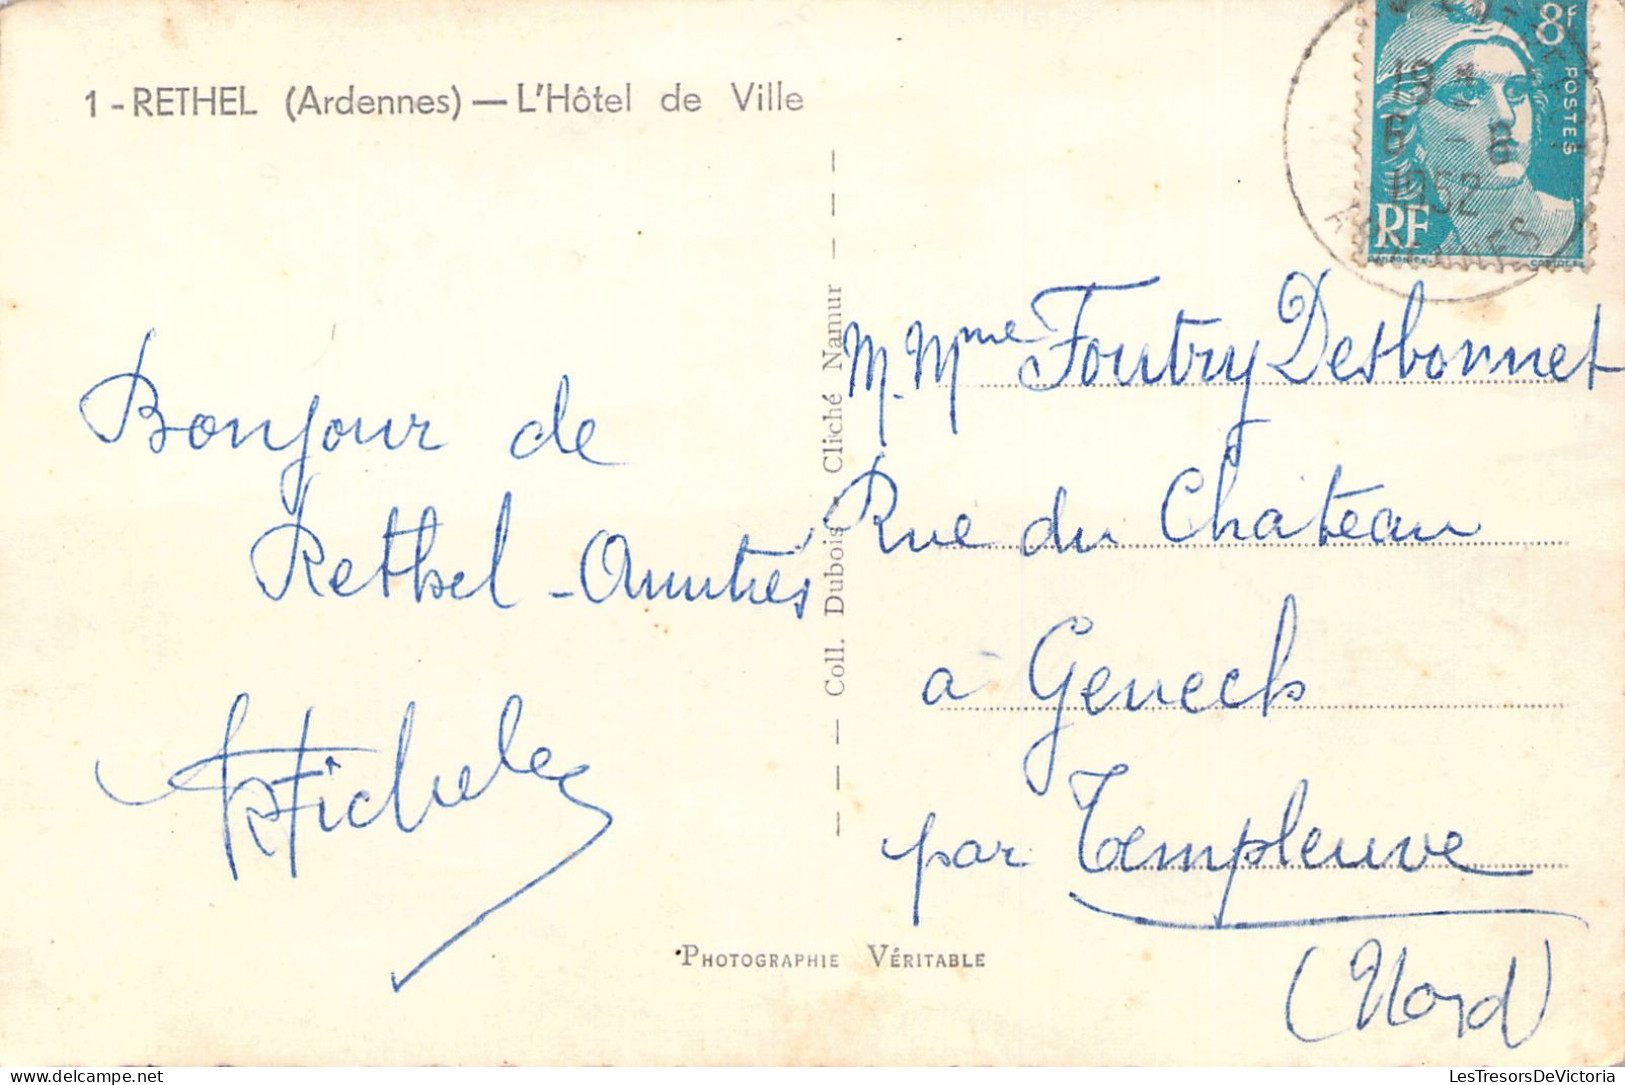 1 - RETHEL (Ardennes) — L'Hôtel de Ville
8f
POSTES
RF
19
6 - 6
1952
Bonjour de
Rethel - Amitiés
M. Mme Foutry Desbonnet
Rue du Chateau
à Geneck
par Templeuve
(Nord)
Coll. Dubois - Cliché Namur
PHOTOGRAPHIE VÉRITABLE
LesTresorsDeVictoria